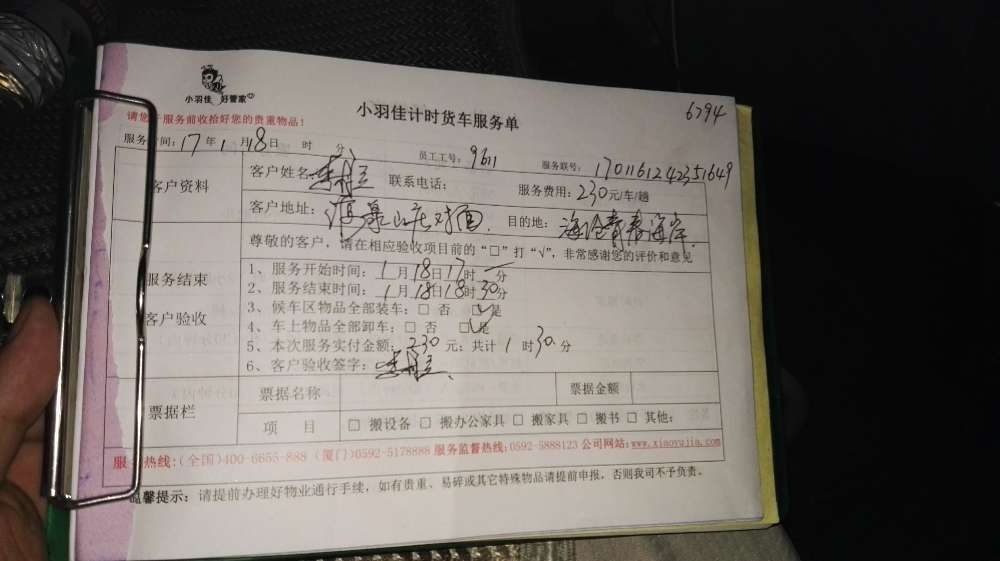 小羽佳 好管家
小羽佳计时货车服务单
6794
请您于服务前收拾好您的贵重物品!
服务时间: 17年1月18日 时 分 员工工号: 9611 服务联号: 1701161242351649
客户资料
客户姓名: 联系电话: 服务费用: 230元/车/趟
客户地址: 山庄对面. 目的地: 海沧青春海岸.
尊敬的客户,请在相应验收项目前的“□”打“√”,非常感谢您的评价和意见
服务结束
客户验收
1、服务开始时间: 1月18日17时 分
2、服务结束时间: 1月18日18时30分
3、候车区物品全部装车: □ 否 □ 是
4、车上物品全部卸车: □ 否 □ 是
5、本次服务实付金额: 230元: 共计1时30分
6、客户验收签字:
票据栏
票据名称 票据金额
项 目 □ 搬设备 □ 搬办公家具 □ 搬家具 □ 搬书 □ 其他:
服务热线:(全国)400-6655-888 (厦门)0592-5178888 服务监督热线:0592-5888123 公司网站:www.xiaoyujia.com
温馨提示: 请提前办理好物业通行手续,如有贵重、易碎或其它特殊物品请提前申报,否则我司不予负责。